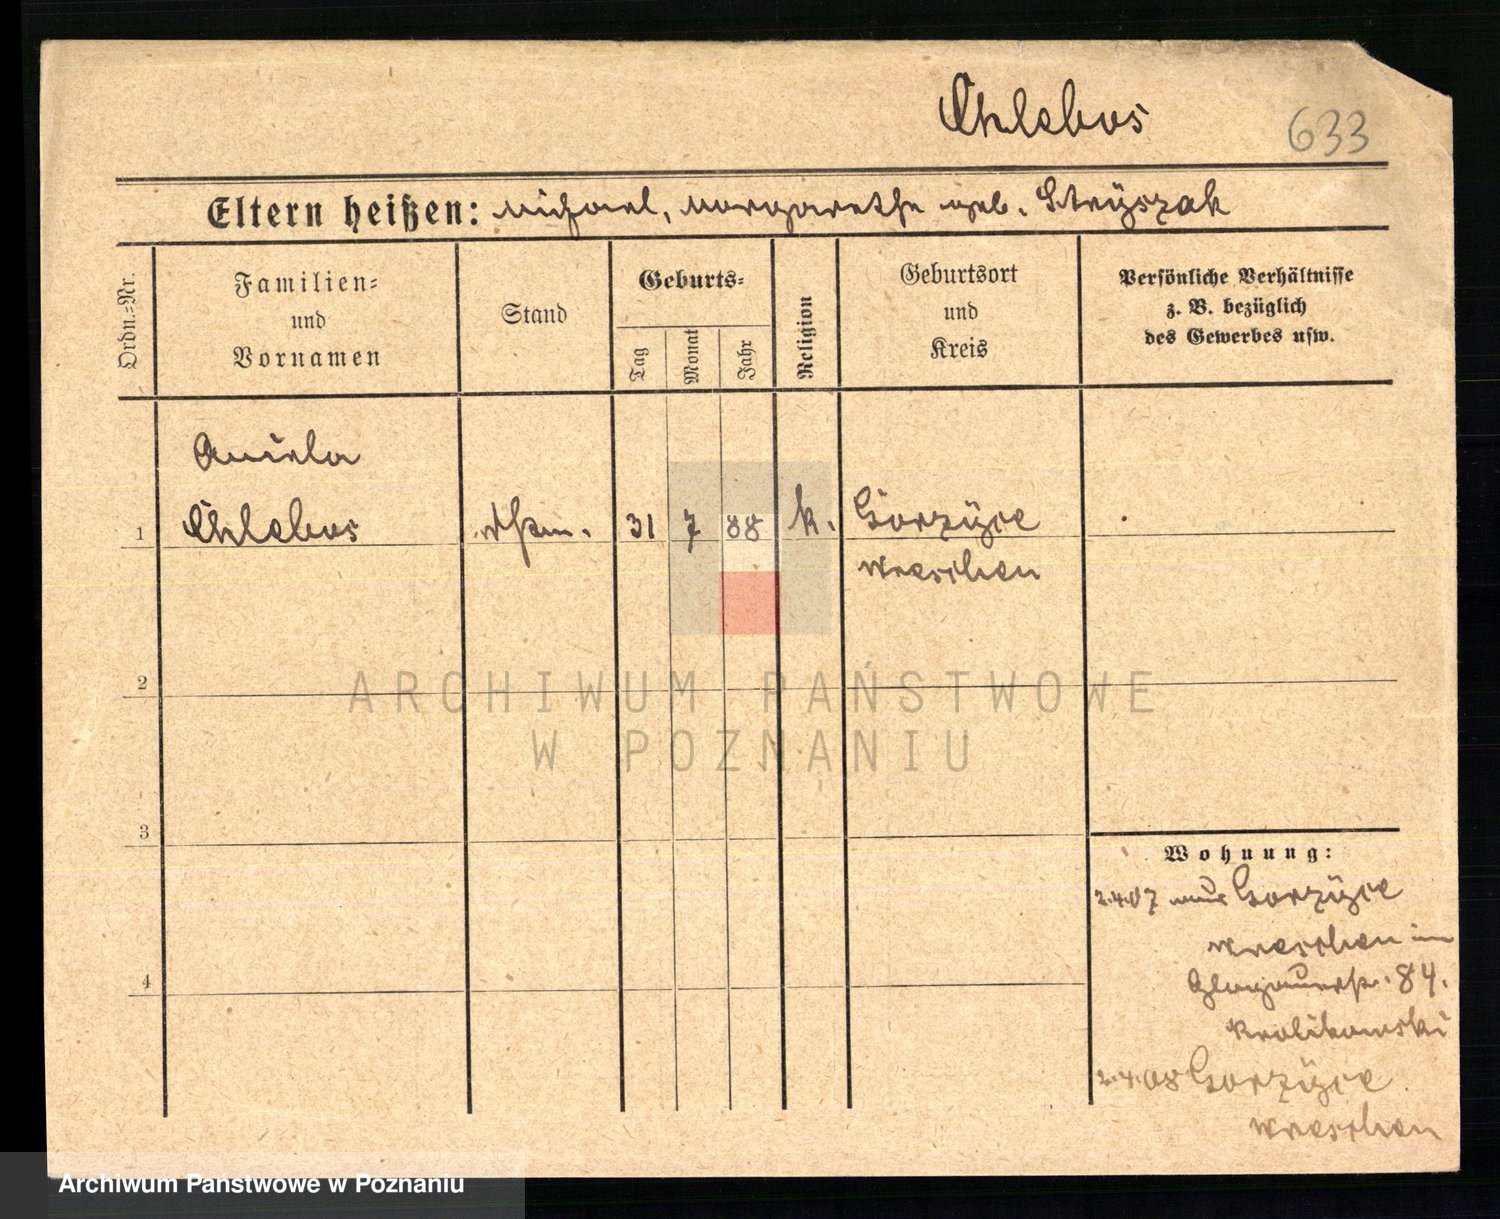 Chlebos
633
Eltern heißen: Michael, Margarethe geb. Stryszak
Ordn.=Nr.
Familien=
und
Vornamen
Stand
Geburts=
Tag
Monat
Jahr
Religion
Geburtsort
und
Kreis
Persönliche Verhältnisse
z. B. bezüglich
des Gewerbes usw.
Aniela
1 Chlebos 31 7 88 k. Gorzyce
Wreschen
2
3
4
Wohnung:
2.4.07 aus Gorzyce
Wreschen in
Glogauerstr. 84.
Krolikowski
2.4.08 Gorzyce
Wreschen
ARCHIWUM PAŃSTWOWE
W POZNANIU
Archiwum Państwowe w Poznaniu